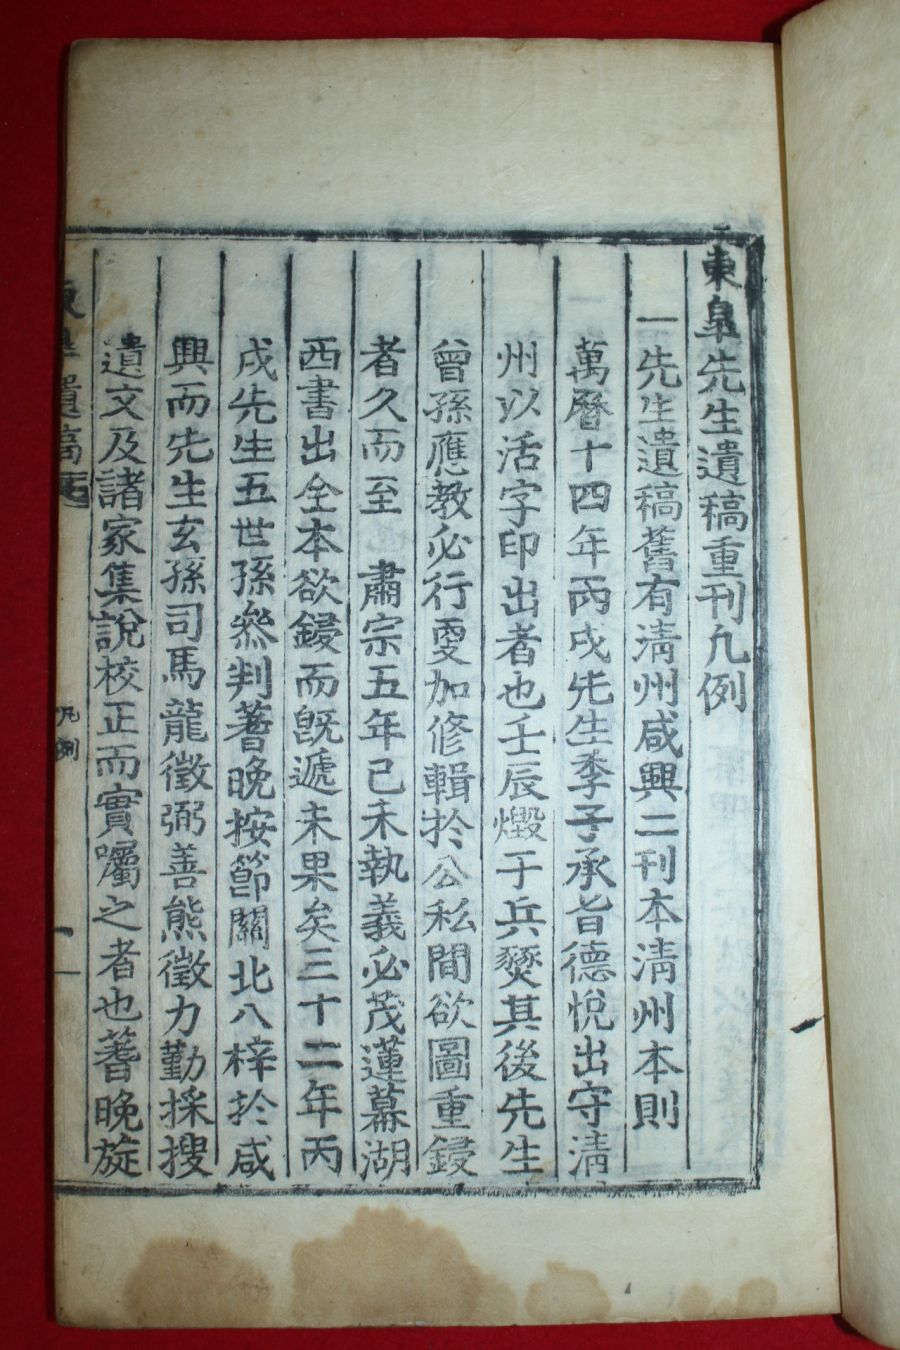 東皐先生遺稿重刊凡例
一先生遺稿舊有淸州咸興二刊本淸州本則
萬曆十四年丙戌先生季子承旨德悅出守淸
州以活字印出者也壬辰燬于兵燹其後先生
曾孫應敎必行更加修輯於公私間欲圖重鋟
者久而至 肅宗五年己未執義必茂蓮幕湖
西書出全本欲鋟而旣遞未果矣三十二年丙
戌先生五世孫叅判蓍晩按節關北入梓於咸
興而先生玄孫司馬龍徵弼善熊徵力勤採搜
遺文及諸家集說校正而實囑之者也蓍晩旋
東皐遺稿
凡例
一